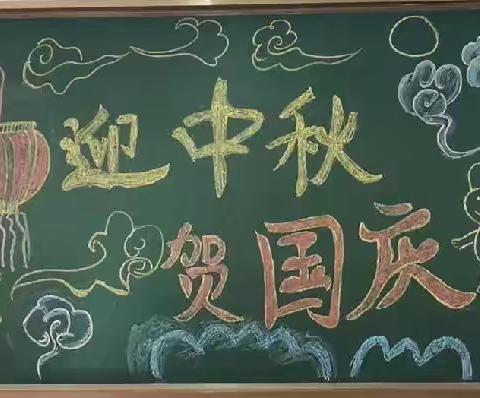 迎中秋
贺国庆